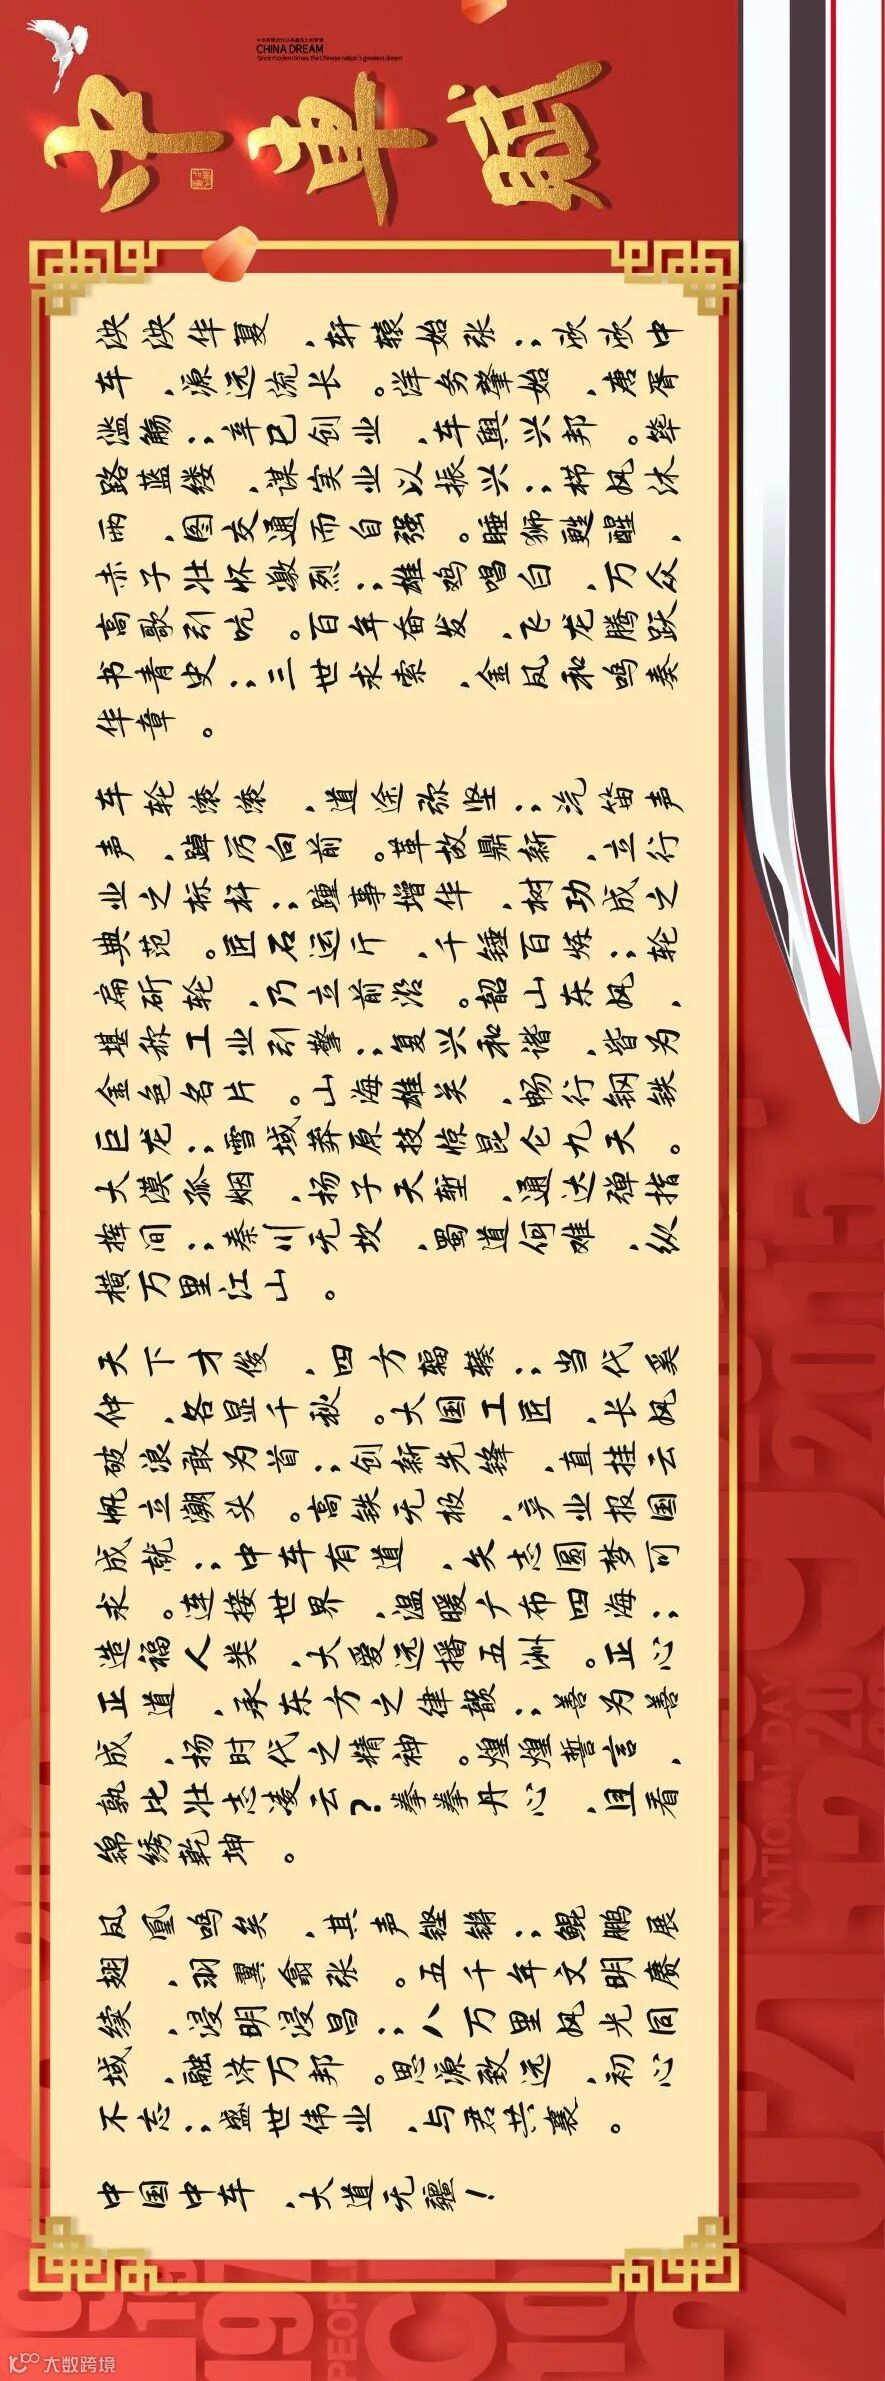 中车赋
中华民族近代以来最伟大的梦想
CHINA DREAM
Since modern times, the Chinese nation's greatest dream
泱泱华夏，轩辕始张；欣欣中
车，源远流长。洋务肇始，唐胥
滥觞；辛巳创业，车舆兴邦。筚
路蓝缕，谋实业以振兴；栉风沐
雨，图交通而自强。睡狮甦醒，
赤子壮怀激烈；雄鸡唱白，万众，
高歌引吭。百年奋发，飞龙腾跃
书青史；三世求索，金凤和鸣奏
华章。
车轮滚滚，道途弥坚；汽笛声
声，踔厉向前。革故鼎新，立行
业之标杆；踵事增华，树功成之
典范。匠石运斤，千锤百炼；轮
扁斫轮，乃立前沿。韶山东风，
堪称工业引擎；复兴和谐，皆为，
金色名片。山海雄关，畅行钢铁
巨龙；雪域莽原技惊昆仑九天。
大漠孤烟，扬子天堑，通达弹指。
挥间；秦川无坎，蜀道何难，纵
横万里江山。
天下才俊，四方辐辏；当代奚
仲，各显千秋。大国工匠，长风
破浪敢为首；创新先锋，直挂云
帆立潮头。高铁无极，产业报国
成就；中车有道，矢志圆梦可
求。连接世界，温暖广布四海；
造福人类，大爱远播五洲。正心
正道，承东方之律韵；善为善
成，扬时代之精神。煌煌誓言，
孰比壮志凌云？拳拳丹心，且看，
锦绣乾坤。
凤凰鸣矣，其声铿锵；鲲鹏展
翅，羽翼翕张。五千年文明赓
续，浸明浸昌；八万里风光同
域，融济万邦。思源致远，初心
不忘；盛世伟业，与君共襄。
中国中车，大道无疆！
NATIONAL DAY
大数跨境